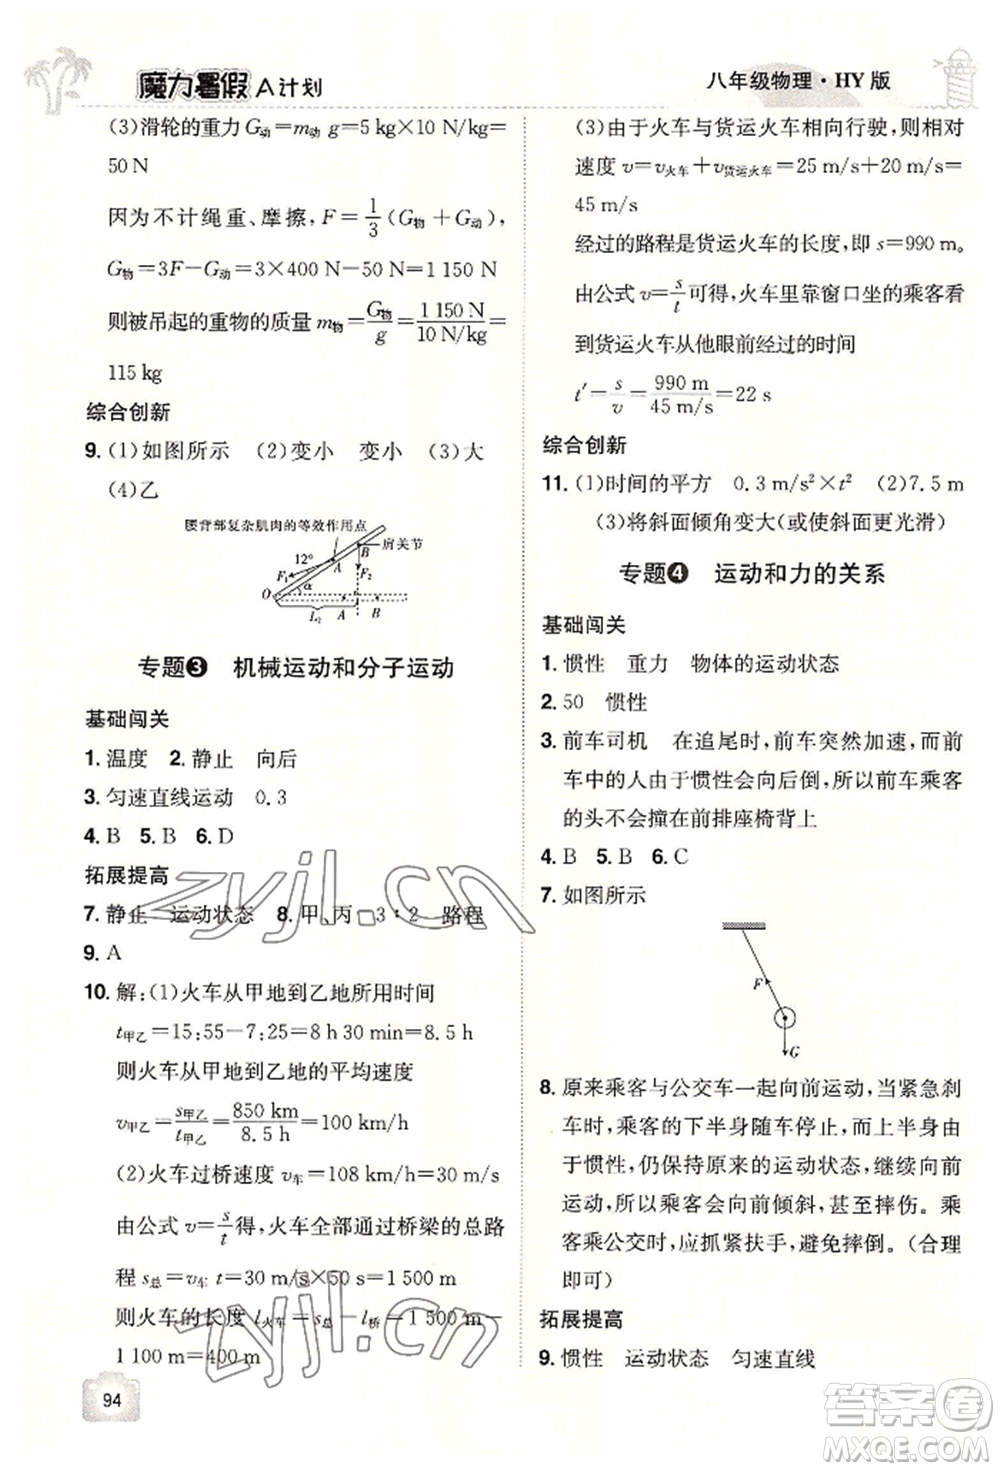 魔力暑假A计划
八年级物理·HY版
(3)滑轮的重力G动=m动 g=5 kg×10 N/kg=
50 N
因为不计绳重、摩擦,F=1/3(G物+G动),
G物=3F-G动=3×400 N-50 N=1 150 N
则被吊起的重物的质量 m物=G物/g=1 150 N/10 N/kg=
115 kg
综合创新
9.(1)如图所示 (2)变小 变小 (3)大
(4)乙
腰背部复杂肌肉的等效作用点
B 肩关节
12° F₁ A F₂
O α
L₂ A B
专题3 机械运动和分子运动
基础闯关
1.温度 2.静止 向后
3.匀速直线运动 0.3
4.B 5.B 6.D
拓展提高
7.静止 运动状态 8.甲、丙 3∶2 路程
9.A
10.解:(1)火车从甲地到乙地所用时间
t甲乙=15:55-7:25=8 h 30 min=8.5 h
则火车从甲地到乙地的平均速度
v甲乙=s甲乙/t甲乙=850 km/8.5 h=100 km/h
(2)火车过桥速度 v车=108 km/h=30 m/s
由公式 v=s/t得,火车全部通过桥梁的总路
程 s总=v车 t=30 m/s×50 s=1 500 m
则火车的长度 l火车=s总-l桥=1 500 m-
1 100 m=400 m
94
(3)由于火车与货运火车相向行驶,则相对
速度 v=v火车+v货运火车=25 m/s+20 m/s=
45 m/s
经过的路程是货运火车的长度,即 s=990 m。
由公式 v=s/t可得,火车里靠窗口坐的乘客看
到货运火车从他眼前经过的时间
t′=s/v=990 m/45 m/s=22 s
综合创新
11.(1)时间的平方 0.3 m/s²×t² (2)7.5 m
(3)将斜面倾角变大(或使斜面更光滑)
专题4 运动和力的关系
基础闯关
1.惯性 重力 物体的运动状态
2.50 惯性
3.前车司机 在追尾时,前车突然加速,而前
车中的人由于惯性会向后倒,所以前车乘客
的头不会撞在前排座椅背上
4.B 5.B 6.C
7.如图所示
F
G
8.原来乘客与公交车一起向前运动,当紧急刹
车时,乘客的下半身随车停止,而上半身由
于惯性,仍保持原来的运动状态,继续向前
运动,所以乘客会向前倾斜,甚至摔伤。乘
客乘公交时,应抓紧扶手,避免摔倒。(合理
即可)
拓展提高
9.惯性 运动状态 匀速直线
zyjl.cn
zyjl.cn
答案圈
MXQE.COM